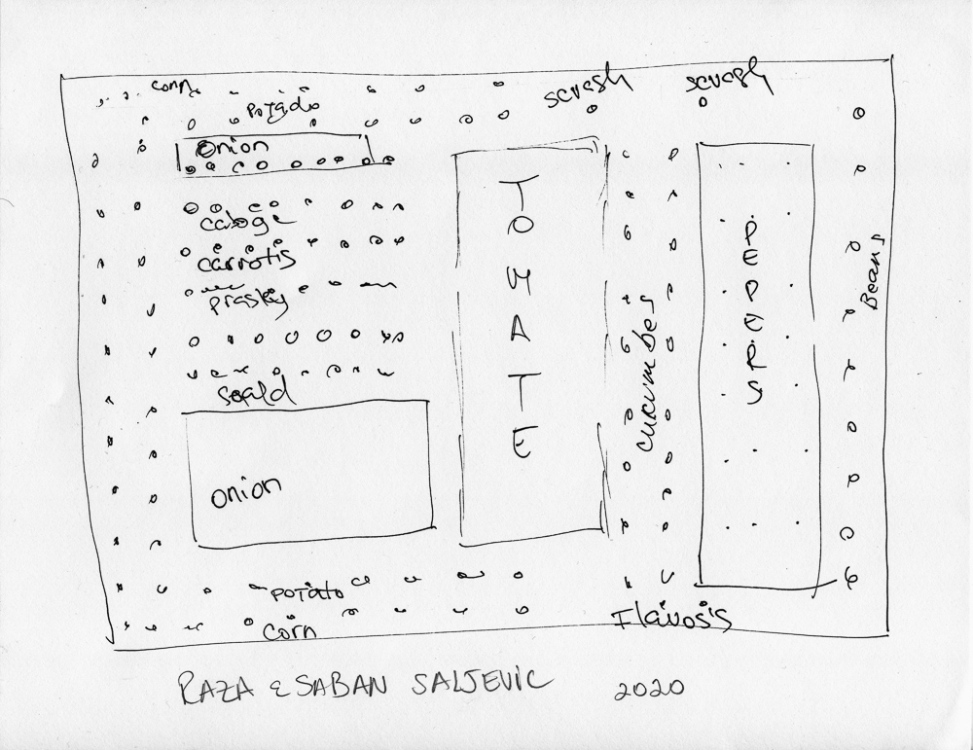 corn
potado
scuash
scuash
onion
cabage
carrotis
prasky
soald
onion
TOMATE
cucumbey
PEPERS
Beans
potato
corn
Flawosis
RAZA & SABAN SALJEVIC 2020